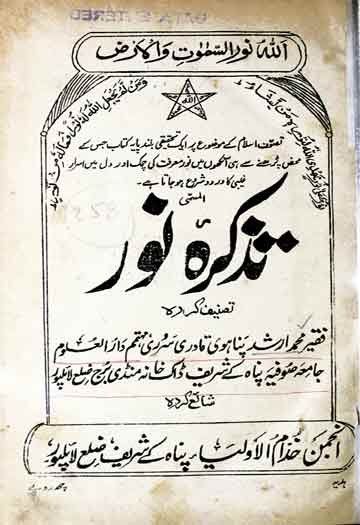 DATA ENTERED
اللہ نور السمٰوٰت والارض
ومن لم یجعل اللہ لہ نورا فمالہ من نور
اللہ
تصوف اسلام کے موضوع پر ایک تحقیقی بلند پایہ کتاب جس کے
محض پڑھنے سے ہی آنکھوں میں نور معرفت کی چمک اور دل میں اسرار
غیبی کا ورود شروع ہو جاتا ہے۔
المسمٰی
تذکرہ نور
تصنیف کردہ
فقیر محمد ارشد پناہوی قادری سروری مہتمم دار العلوم
جامعہ صوفیہ پناہ کے شریف ڈاک خانہ منڈی برج ضلع لائلپور
شائع کردہ
انجمن خدام الاولیاء پناہ کے شریف ضلع لائلپور
ہدیہ